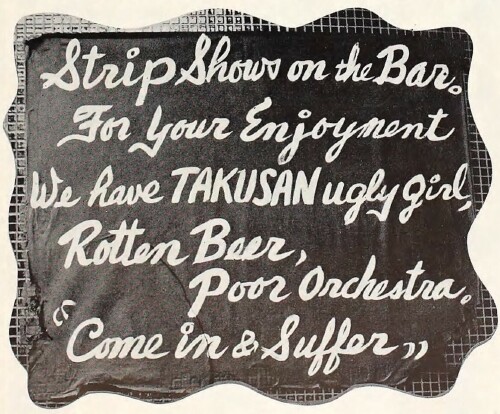 Strip Shows on the Bar.
For Your Enjoyment
We have TAKUSAN ugly girl,
Rotten Beer,
Poor Orchestra.
“Come in & Suffer„